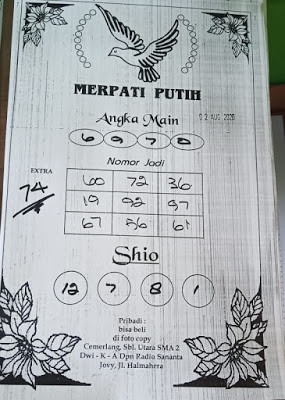 MERPATI PUTIH
Angka Main
02 AUG 2020
6 9 7 0
Nomor Jadi
EXTRA
74
60 72 36
19 92 97
67 56 61
Shio
12 7 8 1
Pribadi :
bisa beli
di foto copy
Cemerlang, Sbl. Utara SMA 2
Dwi - K - A Dpn Radio Sananta
Jovy, Jl. Halmahera